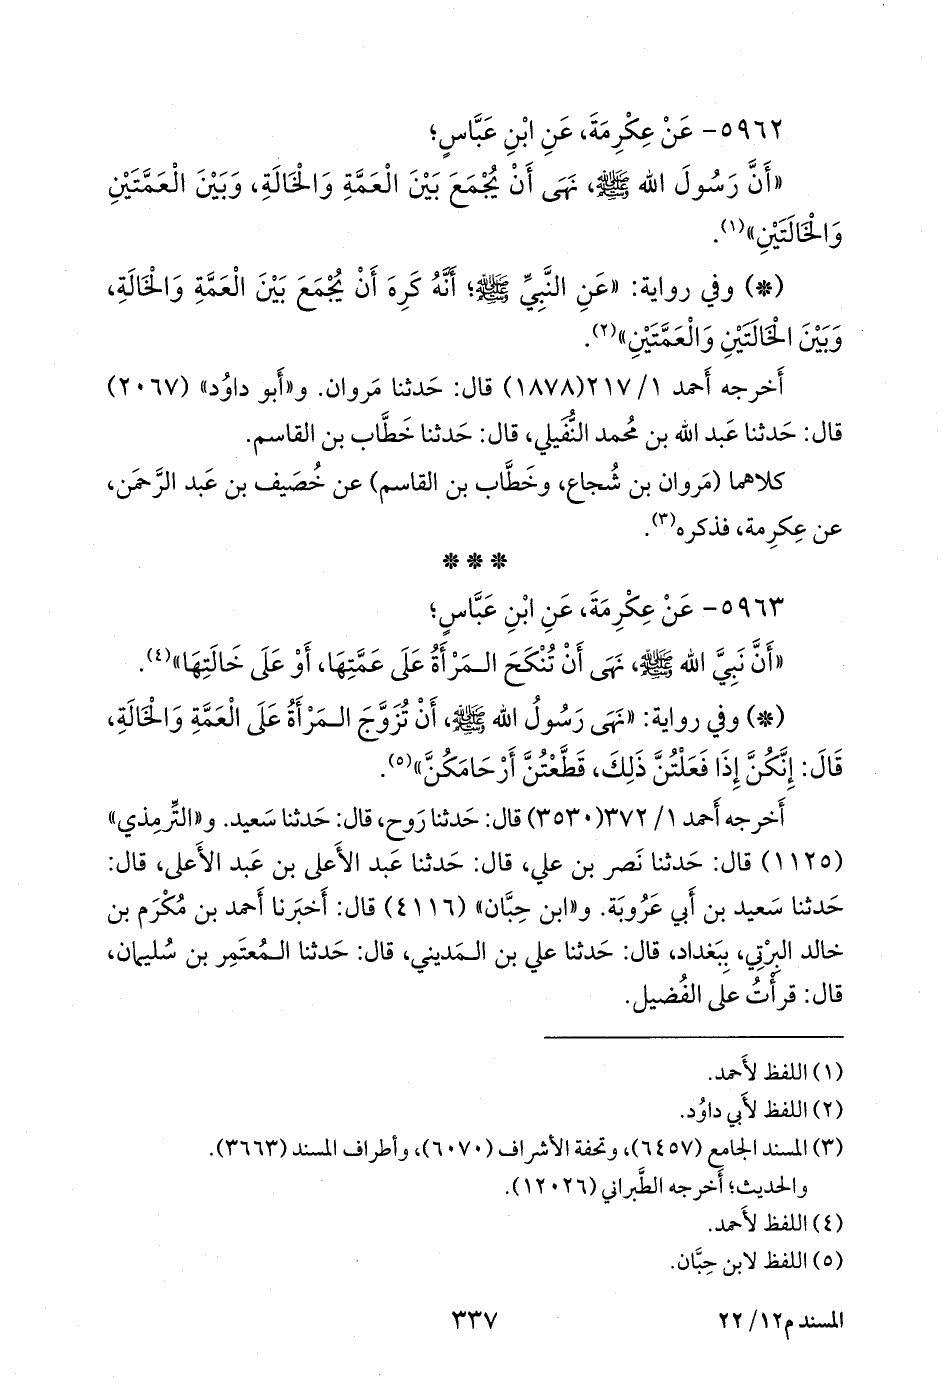 ٥٩٦٢- عَنْ عِكْرِمَةَ، عَنِ ابْنِ عَبَّاسٍ؛
«أَنَّ رَسُولَ الله ﷺ، نَهَى أَنْ يُجْمَعَ بَيْنَ الْعَمَّةِ وَالْخَالَةِ، وَبَيْنَ الْعَمَّتَيْنِ
وَالْخَالَتَيْنِ»(١).
(*) وفي رواية: «عَنِ النَّبِيِّ ﷺ؛ أَنَّهُ كَرِهَ أَنْ يُجْمَعَ بَيْنَ الْعَمَّةِ وَالْخَالَةِ،
وَبَيْنَ الْخَالَتَيْنِ وَالْعَمَّتَيْنِ»(٢).
أَخرجه أَحمد ١/ ٢١٧(١٨٧٨) قال: حَدثنا مَروان. و«أَبو داوُد» (٢٠٦٧)
قال: حَدثنا عَبد الله بن مُحمد النُّفَيلي، قال: حَدثنا خَطَّاب بن القاسم.
كلاهما (مَروان بن شُجاع، وخَطَّاب بن القاسم) عن خُصَيف بن عَبد الرَّحمَن،
عن عِكرِمة، فذكره(٣).
* * *
٥٩٦٣- عَنْ عِكْرِمَةَ، عَنِ ابْنِ عَبَّاسٍ؛
«أَنَّ نَبِيَّ الله ﷺ، نَهَى أَنْ تُنْكَحَ الـمَرْأَةُ عَلَى عَمَّتِهَا، أَوْ عَلَى خَالَتِهَا»(٤).
(*) وفي رواية: «نَهَى رَسُولُ الله ﷺ، أَنْ تُزَوَّجَ الـمَرْأَةُ عَلَى الْعَمَّةِ وَالْخَالَةِ،
قَالَ: إِنَّكُنَّ إِذَا فَعَلْتُنَّ ذَلِكَ، قَطَّعْتُنَّ أَرْحَامَكُنَّ»(٥).
أَخرجه أَحمد ١/ ٣٧٢(٣٥٣٠) قال: حَدثنا رَوح، قال: حَدثنا سَعيد. و«التِّرمِذي»
(١١٢٥) قال: حَدثنا نَصر بن علي، قال: حَدثنا عَبد الأَعلى بن عَبد الأَعلى، قال:
حَدثنا سَعيد بن أَبي عَرُوبَة. و«ابن حِبَّان» (٤١١٦) قال: أَخبَرنا أَحمد بن مُكْرَم بن
خالد البِرْتي، بِبَغداد، قال: حَدثنا علي بن الـمَديني، قال: حَدثنا الـمُعتَمِر بن سُليمان،
قال: قرأْتُ على الفُضيل.
(١) اللفظ لأَحمد.
(٢) اللفظ لأَبي داوُد.
(٣) المسند الجامع (٦٤٥٧)، وتحفة الأشراف (٦٠٧٠)، وأطراف المسند (٣٦٦٣).
والحديث؛ أَخرجه الطَّبراني (١٢٠٢٦).
(٤) اللفظ لأَحمد.
(٥) اللفظ لابن حِبَّان.
المسند م١٢/ ٢٢
٣٣٧